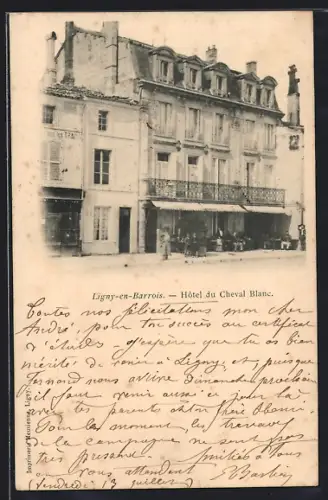 Ligny-en-Barrois. — Hôtel du Cheval Blanc.
Toutes nos félicitations mon cher
André, pour ton succès au certificat
d'études — j'espère que tu as bien
mérité de venir à Ligny, et, puisque
Fernand nous arrive Dimanche prochain
il faut venir aussi ce jour là
avec tes parents et ton frère
Pour le moment, les travaux
de la campagne ne sont pas
très pressant. Amitiés à tous
vous attendant
Vendredi 13 juillet
Imprimerie Ligny.